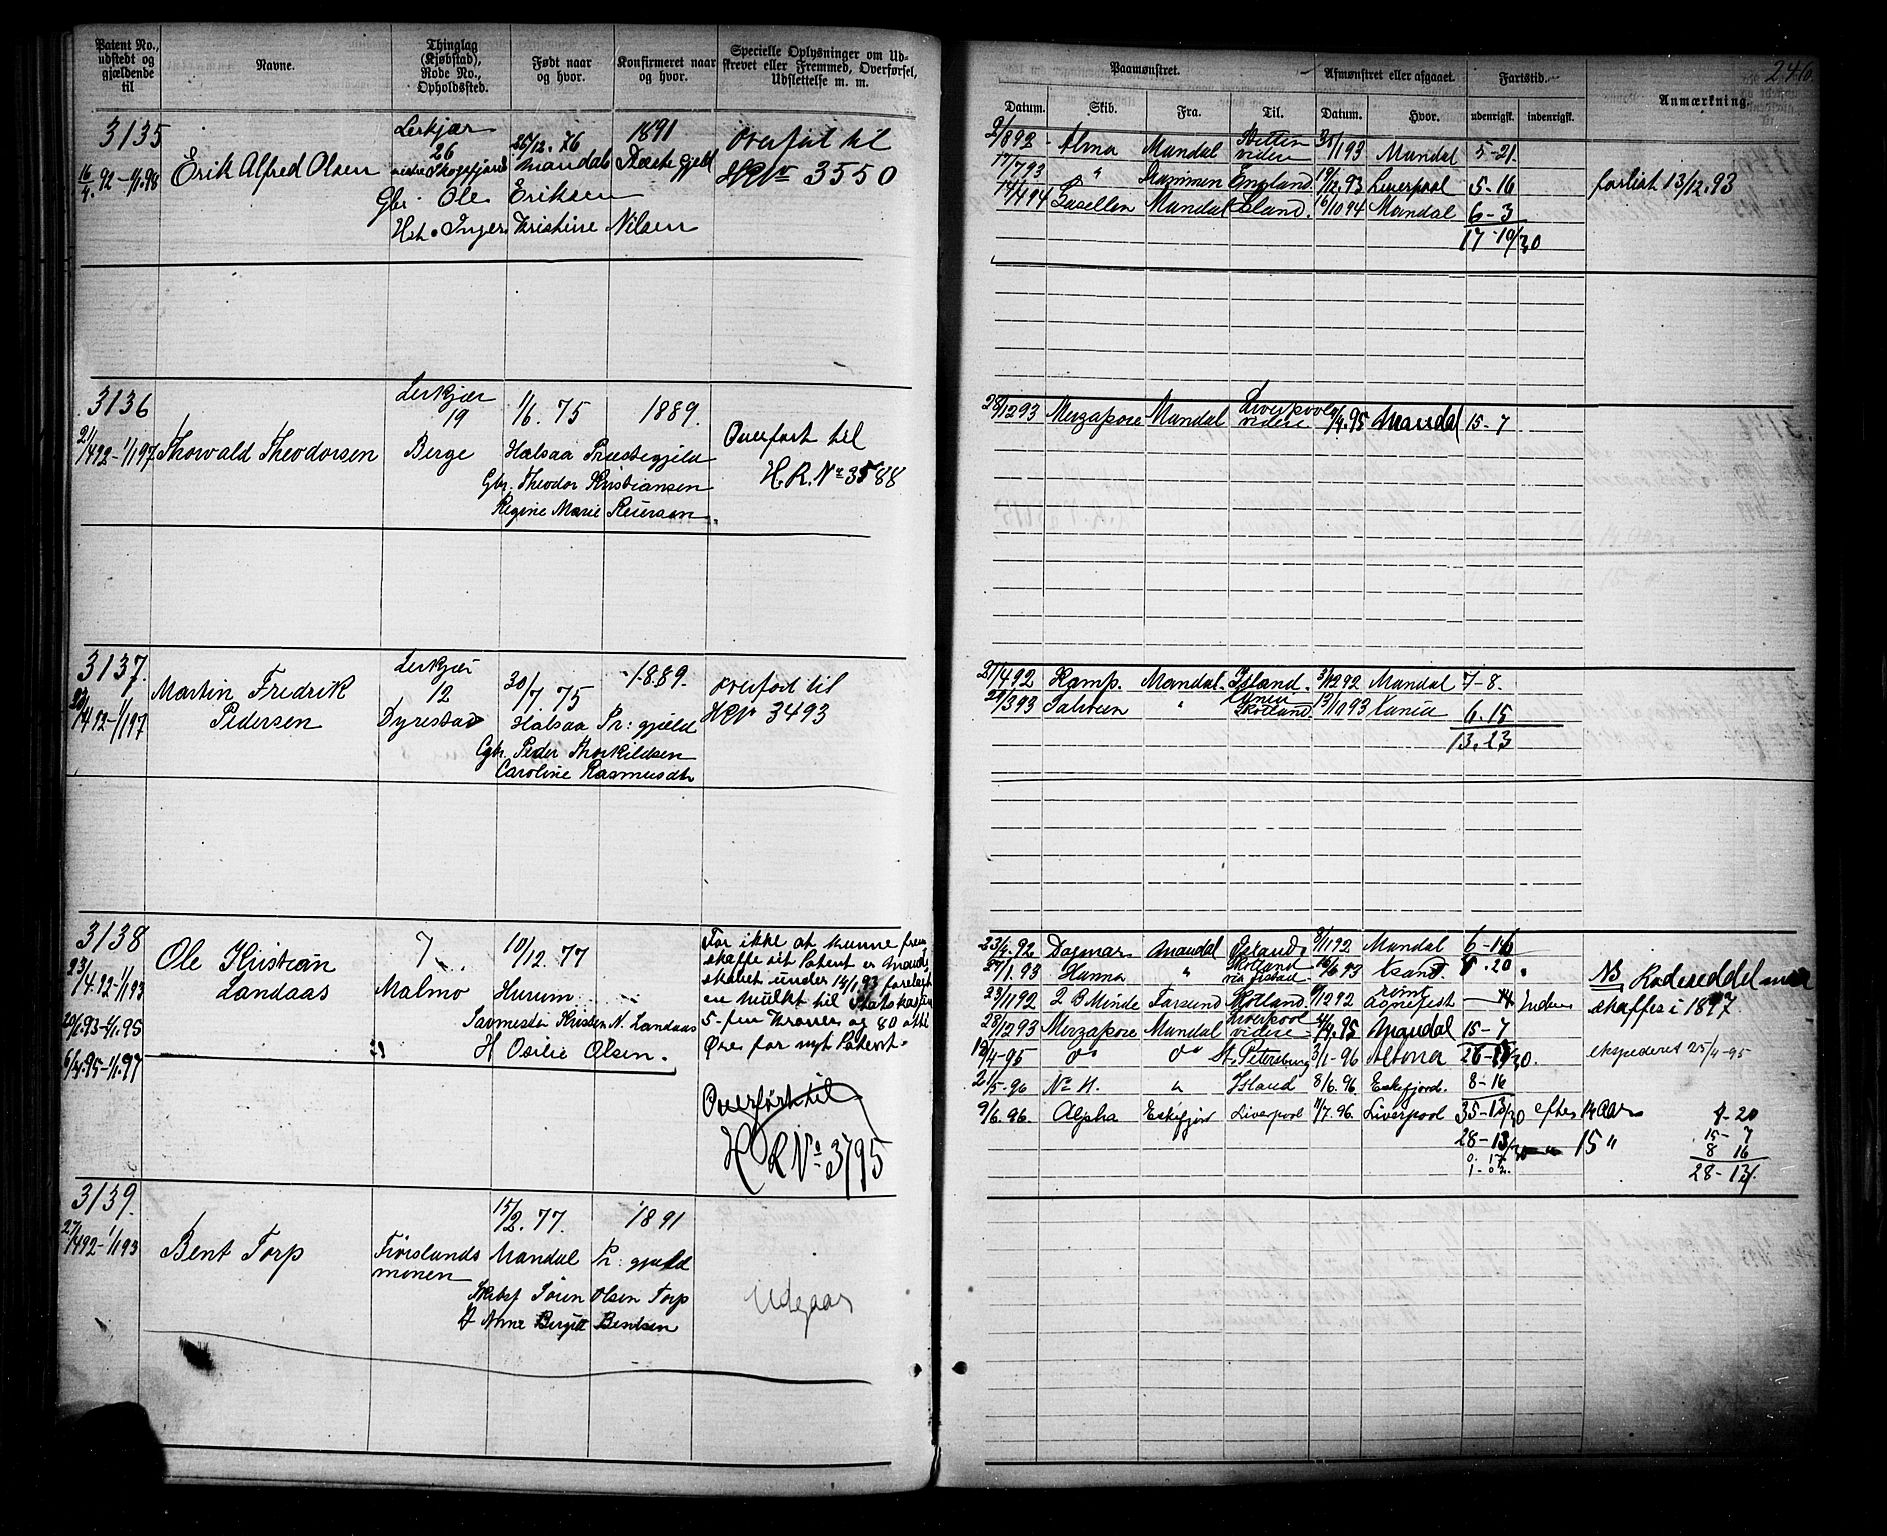 Patent No., udstedt og gjældende til
Navne.
Thinglag (Kjøbstad), Rode No., Opholdssted.
Født naar og hvor.
Konfirmeret naar og hvor.
Specielle Oplysninger om Udskrevet eller Fremmed, Overførsel, Udslettelse m. m.
3135
16/4. 92 - 1/1.98
Erik Alfred Olsen
Lerkjær
26
25/12. 76
1891
Mandals Præstegjeld
Gbr. Ole Eriksen
Hst. Inger Kristine Nilsen
Overført til
HR No 3550
3136
21/4 92 - 1/1 97
Thorvald Theodorsen
Lerkjær
19
Berge
1/6. 75
1889.
Halsaa Præstegjeld
Gbr. Theodor Kristiansen
Regine Marie Reiersen
Overført til
H.R. No 3588
3137.
1/1 97
Martin Fredrik
Pedersen
Lerkjær
12
Dyrestad
30/7. 75
1889.
Halsaa Pr: gjeld
Gbr. Peder Thorkildsen
Caroline Rasmusdtr
Overført til
HR No 3493
3138
23/4. 92 - 1/1 93
20/1. 93 - 1/1. 95
6/4. 95 - 1/1. 97
Ole Kristian
Landaas
7
Malmø
10/12. 77
Hurum
Kristen N. Landaas
H Osilie Olsen.
For ikke at kunne frem
skaffe sit Patent er Mand
skabet under 13/1 93 forelagt
en mulkt til Statskassen
5 - fem Kroner og 80 otti
Øre for nyt Patent.
Overført til
H R No 3795
3139.
27/4 92 - 1/1 93
Bent Torp
Frøislands
monen
15/2. 77.
1891
Mandal Pr: gjeld
Søren Olsen Torp
Anne Birgitt Bentsen
Udgaar
246.
Paamønstret.
Afmønstret eller afgaaet.
Fartstid.
Anmærkning.
Datum.
Skib.
Fra.
Til.
Datum.
Hvor.
udenrigsk.
indenrigsk.
2/8 92 - Alma Mandal Stettin videre 1/93 Mandal 5-21
17/7 93 " Drammen England 19/12. 93 Liverpool 5-16 forlist 13/12. 93
14/4 94 Gasellen Mandal Island. 6/10 94 Mandal 6-3
17-10/30
28/12 93 Mirzapore Mandal Liverpool videre 4/4. 95 Mandal 15-7
21/4 92 Kamp. Mandal. Island. 3/12 92 Mandal 7-8.
Skotland 13/10 93 6.15
13.23
23/4. 92 Dagmar Mandal Island 8/11 92 Mandal 6-16
1. 93 Hanna " Skotland 6 93 Ksand. 20
23/11 92 2 B Minde Farsund Skotland 12 92 Agnefest 14
28/12 93 Mirzapore Mandal Liverpool videre 4/4. 95 Mandal 15-7
12/4-95 do do St. Petersburg 3/1-96 Altona
21/5-96 No 11. " Island 8/6. 96 Eskefjord. 8-16
9/6. 96. Alpha Eskifjord Liverpool 11/7. 96. Liverpool 35-13/30 efter 14 Aar
28-13/30 15 "
NB Rodeseddel maa
skaffes i 1897
ekspederet 25/4-95
8-20
15-7
8 16
28-13/.